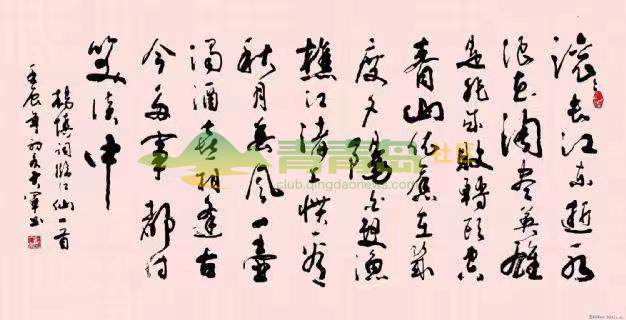 滚滚长江东逝水
浪花淘尽英雄
是非成败转头空
青山依旧在几
度夕阳红白发渔
樵江渚上惯看
秋月春风一壶
浊酒喜相逢古
今多事都付
笑谈中
杨慎词临江仙一首
壬辰年初冬大军书
青青岛社区
club.qingdaonews.com